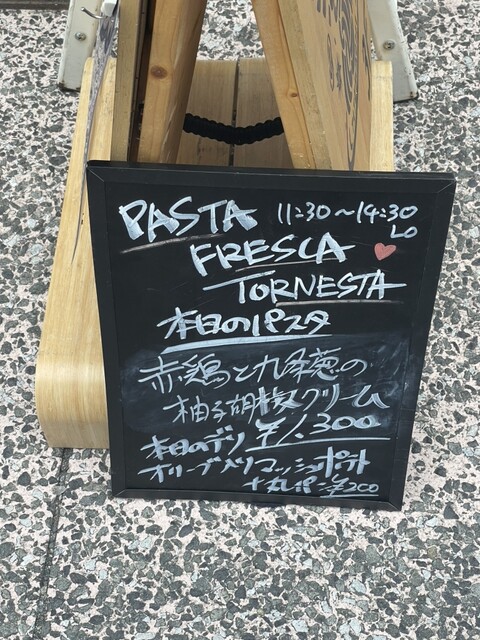 PASTA 11:30〜14:30
LO
FRESCA
TORNESTA
本日のパスタ
赤鶏と九条葱の
柚子胡椒クリーム
¥1.300
本日のデリ
オリーブ入りマッシュポテト
+丸パン ¥200